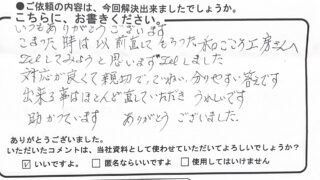 ●ご依頼の内容は、今回解決出来ましたでしょうか。
こちらに、お書きください。
いつもありがとうございます
こまった時は以前直してもらった和ごころ工房さんへ
Telしてみようと思います Telしました
対応が良くて親切で、ていねい、分りやすい答えです
出来る事はほとんど直していただき うれしいです
助かっています ありがとうございました。
ありがとうございました。
いただいたコメントは、当社資料として使わせていただいてよろしいでしょうか?
いいですよ。 匿名ならいいですよ 使用してはいけません